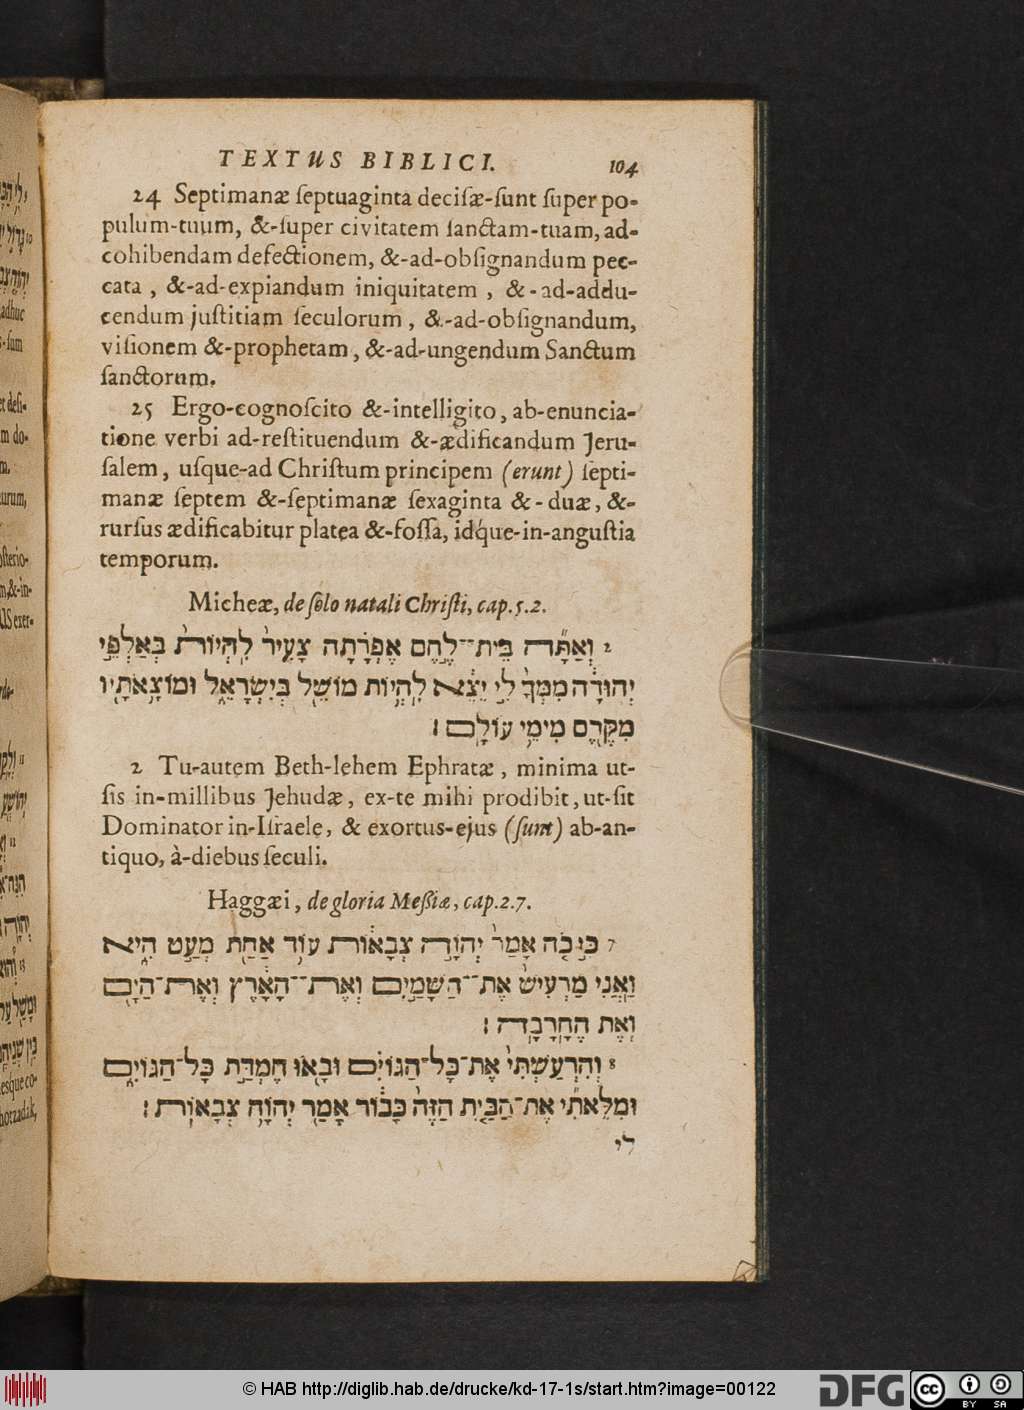 TEXTUS BIBLICI. 104
24 Septimanæ ſeptuaginta deciſæ-ſunt ſuper po-
pulum-tuum, &-ſuper civitatem ſanctam-tuam, ad-
cohibendam defectionem, &-ad-obſignandum pec-
cata, &-ad-expiandum iniquitatem, &-ad-addu-
cendum juſtitiam ſeculorum, &-ad-obſignandum,
viſionem &-prophetam, &-ad-ungendum Sanctum
ſanctorum.
25 Ergo-cognoſcito &-intelligito, ab-enuncia-
tione verbi ad-reſtituendum &-ædificandum Jeru-
ſalem, uſque-ad Chriſtum principem (erunt) ſepti-
manæ ſeptem &-ſeptimanæ ſexaginta &-duæ, &-
rurſus ædificabitur platea &-foſſa, idq́ue-in-anguſtia
temporum.
Micheæ, de ſolo natali Chriſti, cap.5.2.
2 וְאַתָּה בֵּית־לֶחֶם אֶפְרָתָה צָעִיר לִהְיוֹת בְּאַלְפֵי
יְהוּדָה מִמְּךָ לִי יֵצֵא לִהְיוֹת מוֹשֵׁל בְּיִשְׂרָאֵל וּמוֹצָאֹתָיו
מִקֶּדֶם מִימֵי עוֹלָם׃
2 Tu-autem Beth-lehem Ephratæ, minima ut-
ſis in-millibus Jehudæ, ex-te mihi prodibit, ut-ſit
Dominator in-Iſraele, & exortus-ejus (ſunt) ab-an-
tiquo, à-diebus ſeculi.
Haggæi, de gloria Meſſiæ, cap.2.7.
7 כִּי כֹה אָמַר יְהוָה צְבָאוֹת עוֹד אַחַת מְעַט הִיא
וַאֲנִי מַרְעִישׁ אֶת־הַשָּׁמַיִם וְאֶת־הָאָרֶץ וְאֶת־הַיָּם
וְאֶת הֶחָרָבָה׃
8 וְהִרְעַשְׁתִּי אֶת־כָּל־הַגּוֹיִם וּבָאוּ חֶמְדַּת כָּל־הַגּוֹיִם
וּמִלֵּאתִי אֶת־הַבַּיִת הַזֶּה כָּבוֹד אָמַר יְהוָה צְבָאוֹת׃
לי
© HAB http://diglib.hab.de/drucke/kd-17-1s/start.htm?image=00122
DFG
cc BY SA